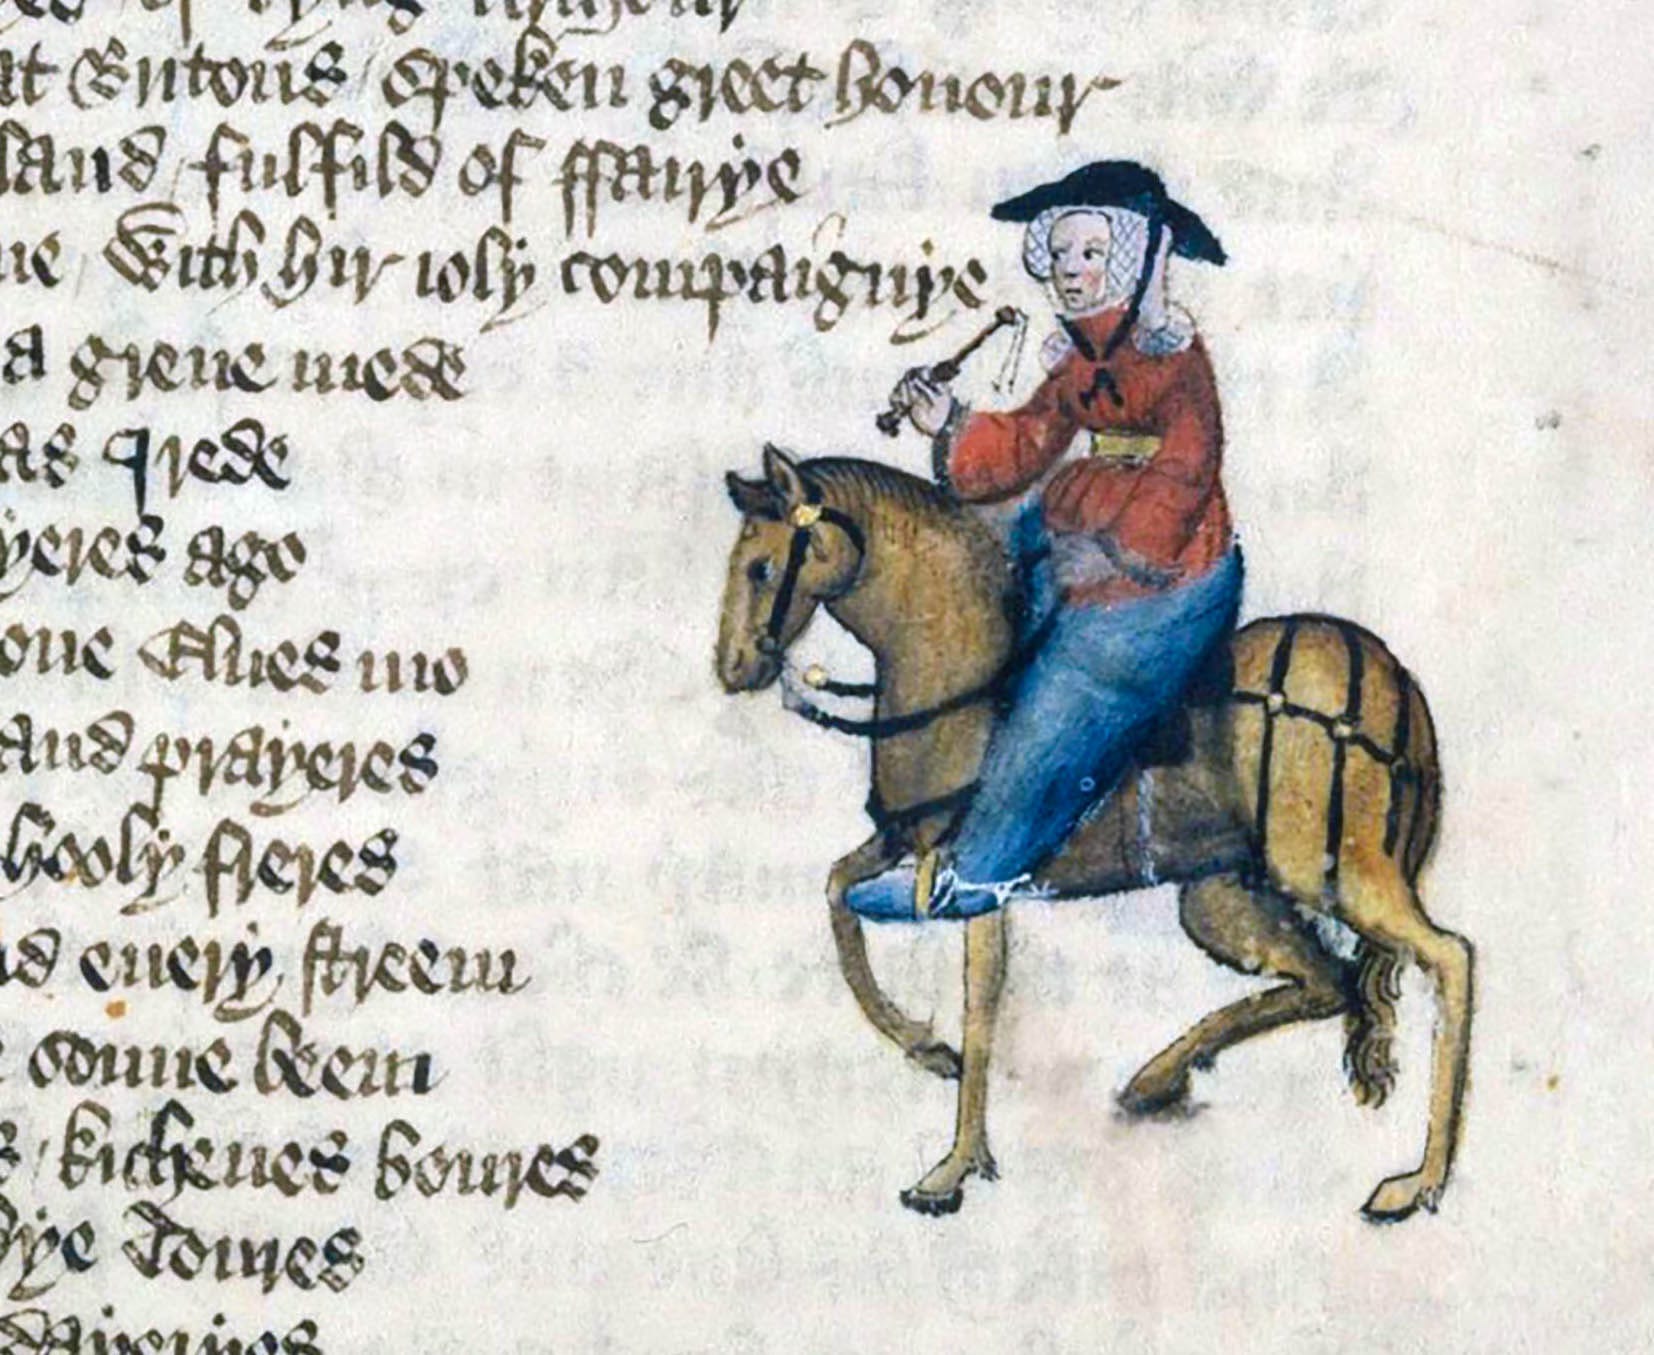 at Britons / Speken greet honour
land / fulfild of ffairye
ue / With hir ioly compaignye
a grene mede
as I rede
yeres ago
one Elues mo
and prayeres
hooly freres
nd euery streem
sonne beem
s / kichenes boures
dye toures
dayeryes